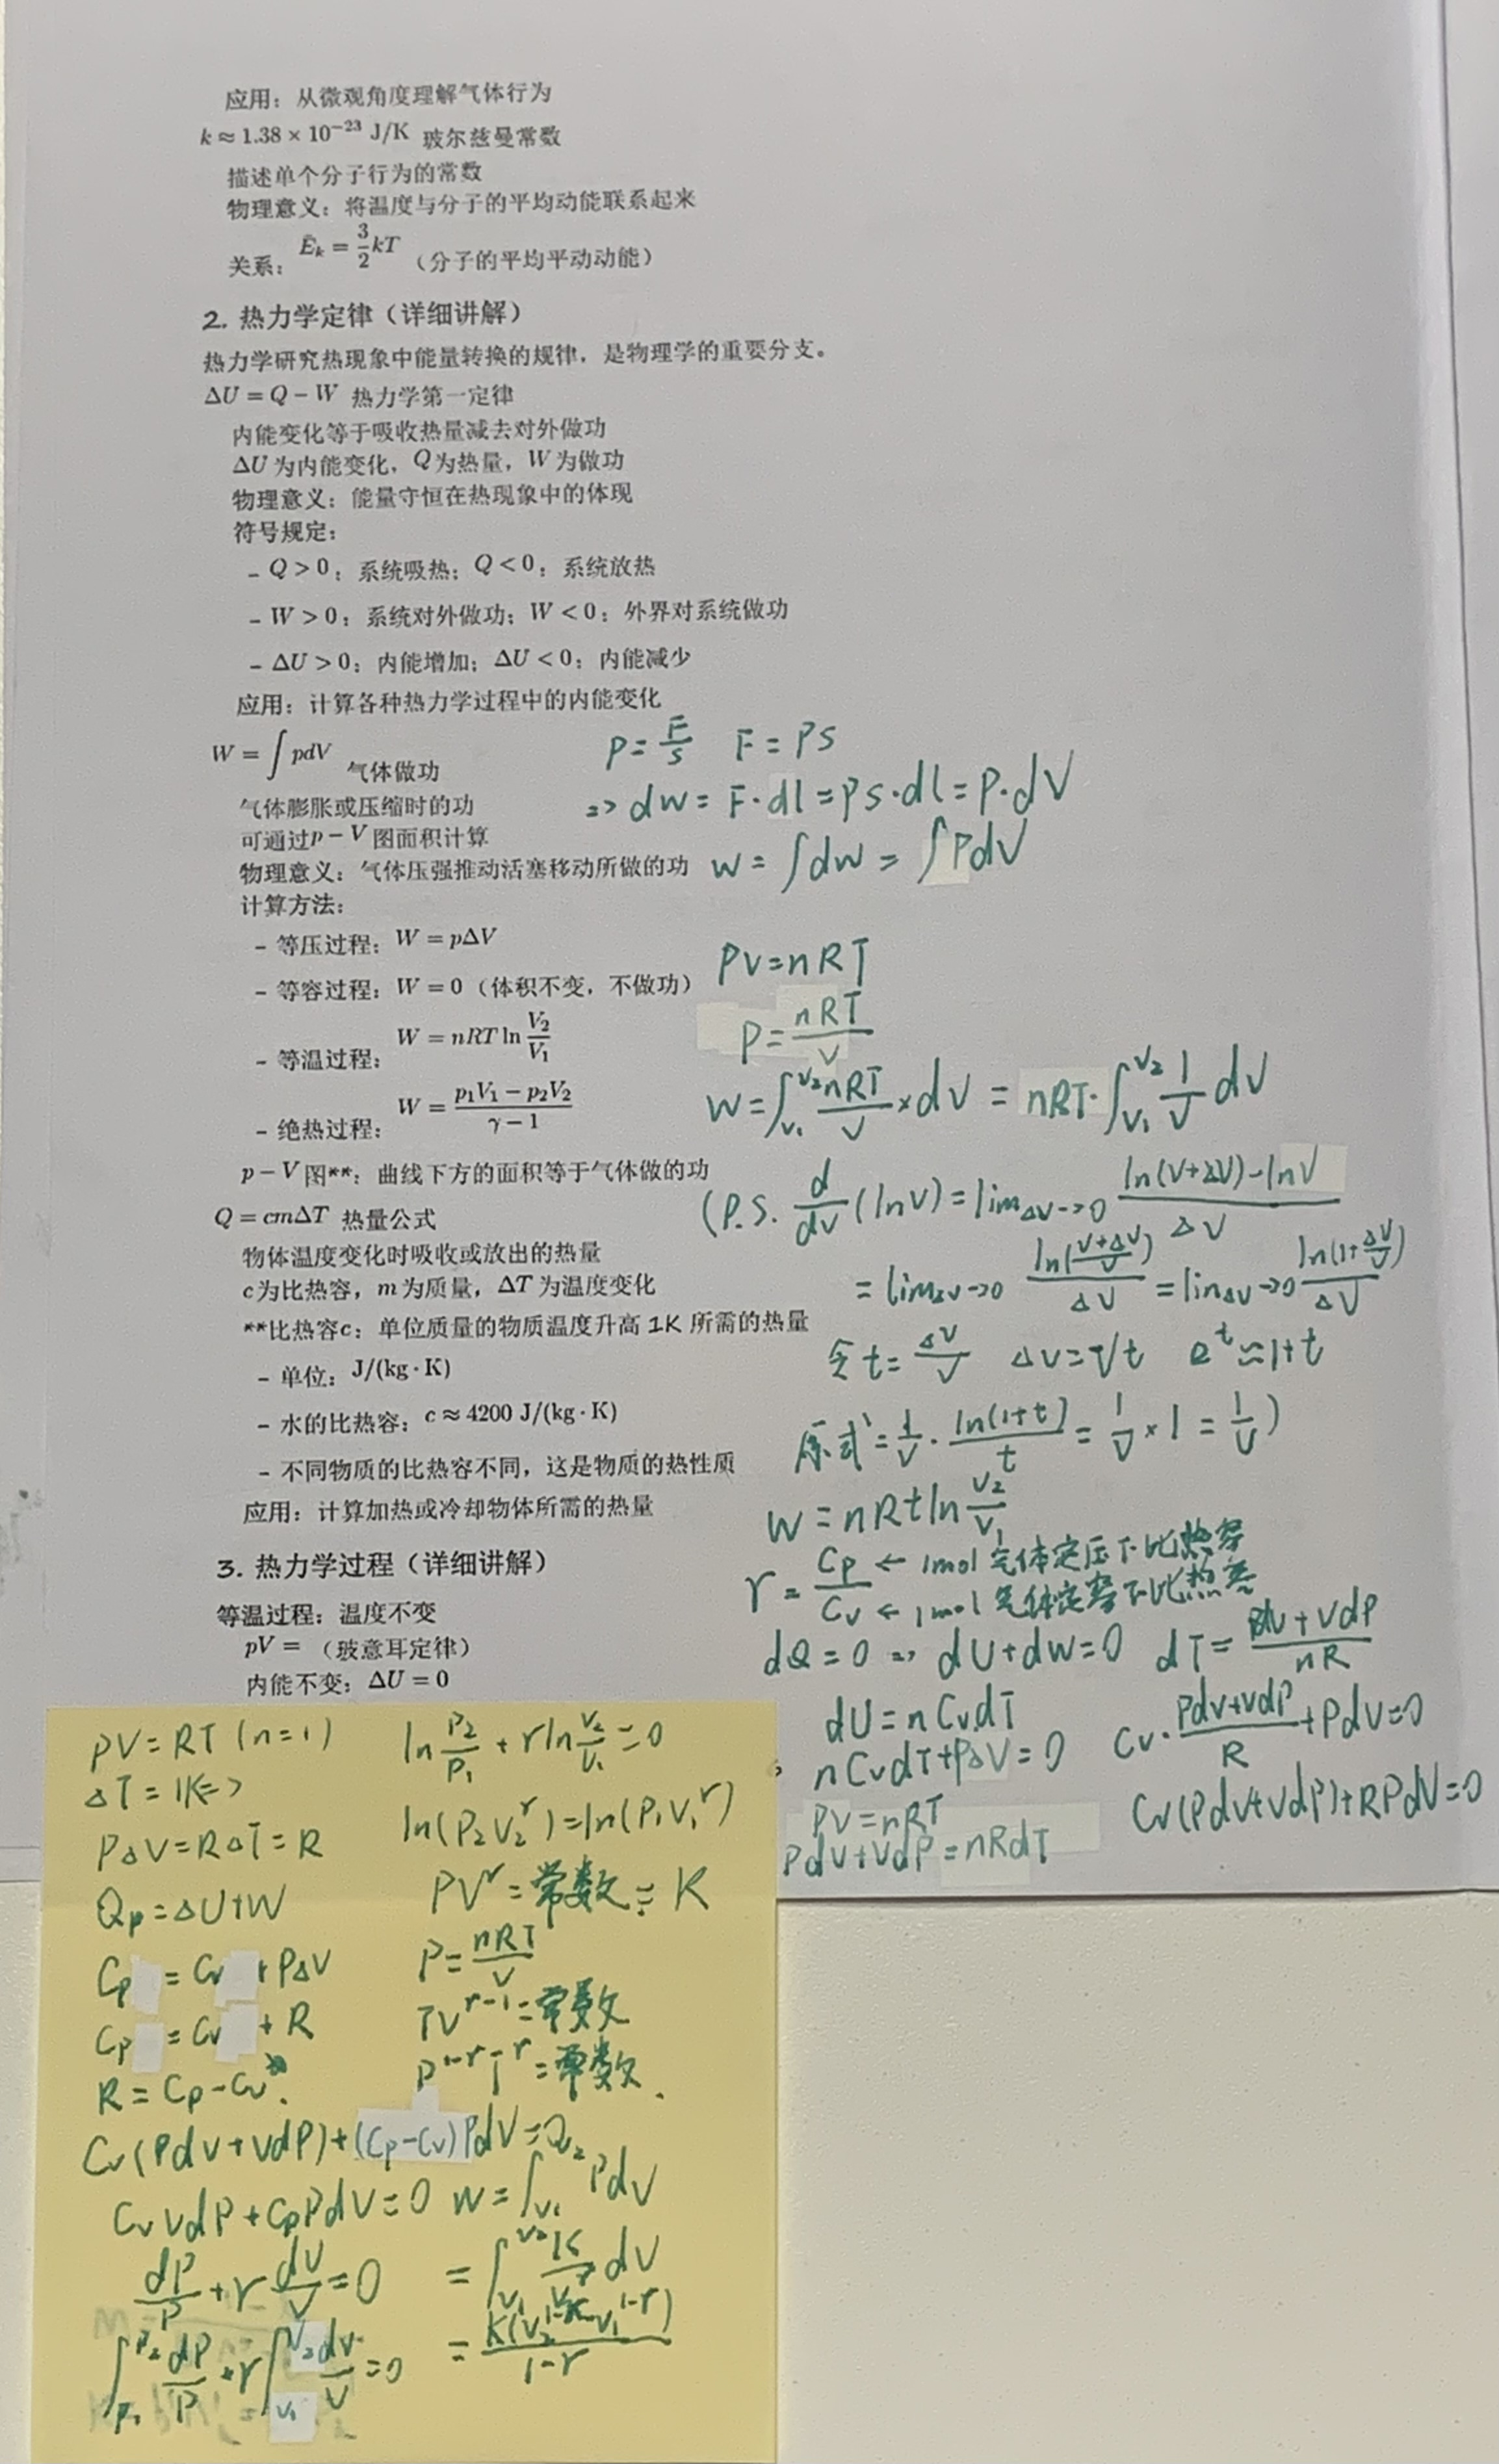 应用：从微观角度理解气体行为
k ≈ 1.38 × 10⁻²³ J/K 玻尔兹曼常数
描述单个分子行为的常数
物理意义：将温度与分子的平均动能联系起来
关系：Ēₖ = 3/2 kT （分子的平均平动动能）
2. 热力学定律（详细讲解）
热力学研究热现象中能量转换的规律，是物理学的重要分支。
ΔU = Q − W 热力学第一定律
内能变化等于吸收热量减去对外做功
ΔU 为内能变化，Q为热量，W 为做功
物理意义：能量守恒在热现象中的体现
符号规定：
– Q > 0：系统吸热；Q < 0：系统放热
– W > 0：系统对外做功；W < 0：外界对系统做功
– ΔU > 0：内能增加；ΔU < 0：内能减少
应用：计算各种热力学过程中的内能变化
W = ∫ pdV 气体做功
气体膨胀或压缩时的功
可通过p − V 图面积计算
物理意义：气体压强推动活塞移动所做的功
计算方法：
– 等压过程：W = pΔV
– 等容过程：W = 0（体积不变，不做功）
– 等温过程：W = nRT ln V₂/V₁
– 绝热过程：W = (p₁V₁ − p₂V₂)/(γ − 1)
p − V 图**：曲线下方的面积等于气体做的功
Q = cmΔT 热量公式
物体温度变化时吸收或放出的热量
c为比热容，m 为质量，ΔT 为温度变化
**比热容c：单位质量的物质温度升高 1K 所需的热量
– 单位：J/(kg · K)
– 水的比热容：c ≈ 4200 J/(kg · K)
– 不同物质的比热容不同，这是物质的热性质
应用：计算加热或冷却物体所需的热量
3. 热力学过程（详细讲解）
等温过程：温度不变
pV = （玻意耳定律）
内能不变：ΔU = 0
P = F/S F = PS
=> dW = F·dl = PS·dl = P·dV
W = ∫dW = ∫PdV
PV = nRT
P = nRT/V
W = ∫_V₁^V₂ nRT/V × dV = nRT·∫_V₁^V₂ 1/V dV
(P.S. d/dV (lnV) = lim_ΔV->0 (ln(V+ΔV)-lnV)/ΔV
= lim_ΔV->0 ln((V+ΔV)/V)/ΔV = lim_ΔV->0 ln(1+ΔV/V)/ΔV
令 t = ΔV/V ΔV = Vt eᵗ ≈ 1+t
原式 = 1/V · ln(1+t)/t = 1/V × 1 = 1/V )
W = nRt ln V₂/V₁
γ = Cp/Cv
Cp ← 1mol 气体定压下比热容
Cv ← 1mol 气体定容下比热容
dQ = 0 => dU + dW = 0 dT = (PdV + VdP)/nR
dU = nCvdT
nCvdT + PΔV = 0 Cv·(PdV+VdP)/R + PdV = 0
PV = nRT Cv(PdV+VdP)+RPdV=0
PdV + VdP = nRdT
PV = RT (n=1)
ΔT = 1K =>
PΔV = RΔT = R
Qp = ΔU + W
Cp = Cv + PΔV
Cp = Cv + R
R = Cp - Cv.
Cv(PdV+VdP)+(Cp-Cv)PdV=0
CvVdP + CpPdV = 0
dP/P + γ dV/V = 0
∫_P₁^P₂ dP/P + γ∫_V₁^V₂ dV/V = 0
ln P₂/P₁ + γ ln V₂/V₁ = 0
ln(P₂V₂^γ) = ln(P₁V₁^γ)
PV^γ = 常数 = K
P = nRT/V
TV^γ⁻¹ = 常数
P^1-γ T^γ = 常数.
W = ∫_V₁^V₂ PdV
= ∫_V₁^V₂ K/V^γ dV
= K(V₂^1-γ - V₁^1-γ)/(1-γ)